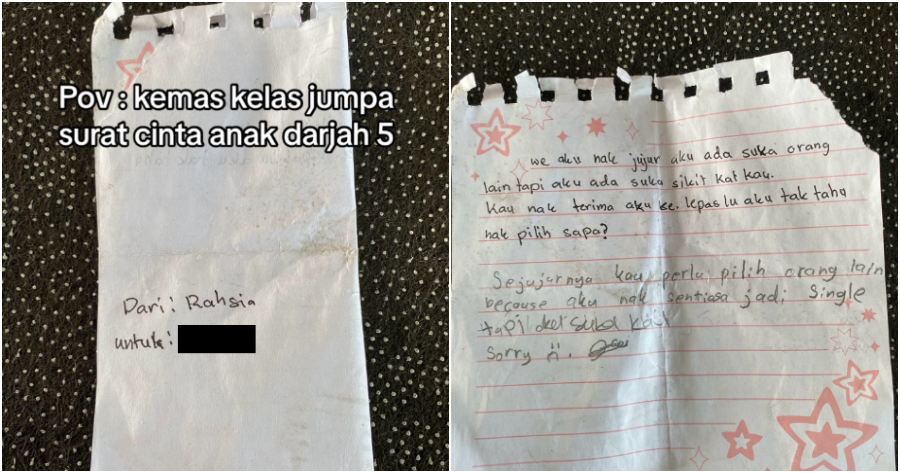 Pov : kemas kelas jumpa
surat cinta anak darjah 5
Dari: Rahsia
untuk:
we aku nak jujur aku ada suka orang
lain tapi aku ada suka sikit kat kau.
Kau nak terima aku ke. lepas lu aku tak tahu
nak pilih sapa?
Sejujurnya kau perlu pilih orang lain
because aku nak sentiasa jadi single
tapi suka kau
Sorry